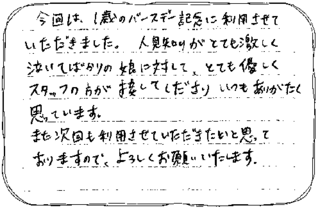 今回は、1歳のバースデー記念に利用させて
いただきました。人見知りがとても激しく
泣いてばかりの娘に対して、とても優しく
スタッフの方が接してくださり いつもありがたく
思っています。
また次回も利用させていただきたいと思って
おりますので、よろしくお願いいたします。